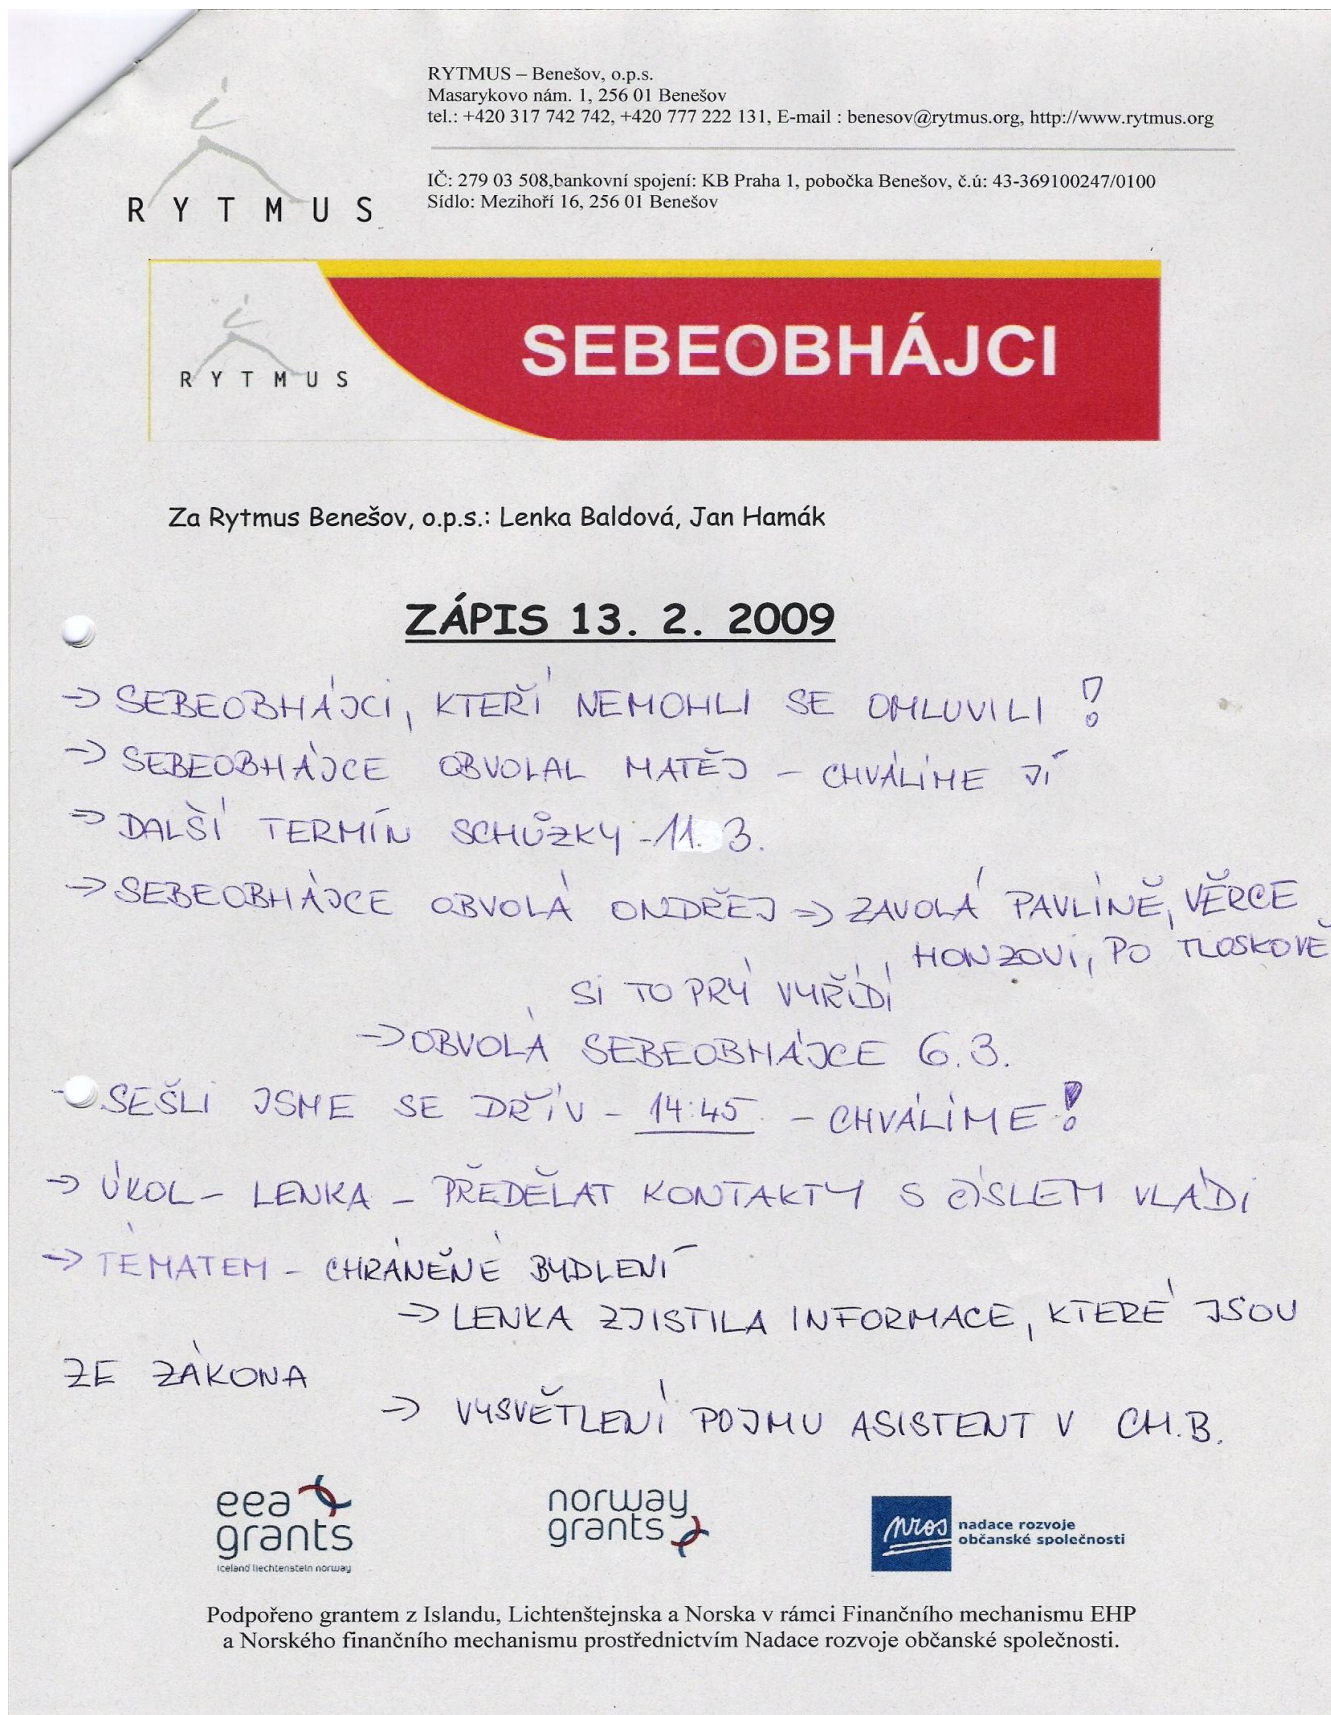 RYTMUS – Benešov, o.p.s.
Masarykovo nám. 1, 256 01 Benešov
tel.: +420 317 742 742, +420 777 222 131, E-mail : benesov@rytmus.org, http://www.rytmus.org
IČ: 279 03 508,bankovní spojení: KB Praha 1, pobočka Benešov, č.ú: 43-369100247/0100
Sídlo: Mezihoří 16, 256 01 Benešov
RYTMUS
SEBEOBHÁJCI
RYTMUS
Za Rytmus Benešov, o.p.s.: Lenka Baldová, Jan Hamák
ZÁPIS 13. 2. 2009
→ SEBEOBHÁJCI, KTEŘÍ NEMOHLI SE OMLUVILI !
→ SEBEOBHÁJCE OBVOLAL MATĚJ – CHVÁLÍME JÍ
→ DALŠÍ TERMÍN SCHŮZKY - 11. 3.
→ SEBEOBHÁJCE OBVOLÁ ONDŘEJ → ZAVOLÁ PAVLÍNĚ, VĚRCE
HONZOVI, PO TLOSKOVĚ
SI TO PRÝ VYŘÍDÍ
→ OBVOLÁ SEBEOBHÁJCE 6.3.
SEŠLI JSME SE DŘÍV – 14:45 – CHVÁLÍME !
→ ÚKOL – LENKA – PŘEDĚLAT KONTAKTY S ČÍSLEM VLÁDI
→ TÉMATEM – CHRÁNĚNÉ BYDLENÍ
→ LENKA ZJISTILA INFORMACE, KTERÉ JSOU
ZE ZÁKONA
→ VYSVĚTLENÍ POJMU ASISTENT V CH.B.
eea grants
iceland liechtenstein norway
norway grants
nros nadace rozvoje občanské společnosti
Podpořeno grantem z Islandu, Lichtenštejnska a Norska v rámci Finančního mechanismu EHP
a Norského finančního mechanismu prostřednictvím Nadace rozvoje občanské společnosti.